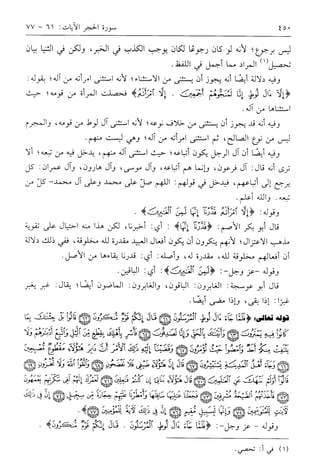 ٤٥٠ سورة الحجر الآيات: ٦١ - ٧٧
ليس برجوع؛ لأنه لو كان رجوعًا لكان يوجب الكذب في الخبر، ولكن في الثنيا بيان
تحصيل(١) المراد مما أجمل في اللفظ.
وفيه دلالة أيضًا أنه يجوز أن يستثنى من الاستثناء؛ لأنه استثنى امرأته من آله؛ بقوله:
﴿إِلَّا آلَ لُوطٍ إِنَّا لَمُنَجُّوهُمْ أَجْمَعِينَ . إِلَّا امْرَأَتَهُ﴾ فحصلت المرأة من قومه؛ حيث
استثناها من آله.
وفيه أنه قد يجوز أن يستثنى من خلاف نوعه؛ لأنه استثنى آل لوط من قومه، والمجرم
ليس من نوع الصالح، ثم استثنى امرأته من آله؛ وهي ليست منهم.
وفيه أيضًا أن آل الرجل يكون أتباعه؛ حيث استثنى آله منهم، يدخل فيه من تبعه؛ ألا
ترى أنه قال: آل فرعون، وإنما هم أتباعه، وآل موسى، وآل هارون، وآل عمران: كل
يرجع إلى أتباعهم، فيدخل في قولهم: اللهم صلّ على محمد وعلى آل محمد - كلّ من
تبعه. والله أعلم.
وقوله: ﴿إِلَّا امْرَأَتَهُ قَدَّرْنَا إِنَّهَا لَمِنَ الْغَابِرِينَ﴾ .
قال أبو بكر الأصم: ﴿قَدَّرْنَا إِنَّهَا﴾ : أي: أخبرنا، لكن هذا منه احتيال على تقوية
مذهب الاعتزال؛ لأنهم ينكرون أن يكون أفعال العبيد مقدرة لله مخلوقة، ففي ذلك دلالة
أن أفعالهم مخلوقة لله، مقدرة له، وأصله: أي: قدرنا بقاءها من الأصل.
وقوله -عز وجل-: ﴿لَمِنَ الْغَابِرِينَ﴾: أي: الباقين.
قال أبو عوسجة: الغابرون: الباقون، والغابرون: الماضون أيضًا؛ يقال: غبر يغبر
غبرًا: إذا بقى، وإذا مضى أيضًا.
قوله تعالى: ﴿فَلَمَّا جَاءَ آلَ لُوطٍ الْمُرْسَلُونَ قَالَ إِنَّكُمْ قَوْمٌ مُنْكَرُونَ قَالُوا بَلْ جِئْنَاكَ بِمَا
كَانُوا فِيهِ يَمْتَرُونَ وَأَتَيْنَاكَ بِالْحَقِّ وَإِنَّا لَصَادِقُونَ فَأَسْرِ بِأَهْلِكَ بِقِطْعٍ مِنَ اللَّيْلِ وَاتَّبِعْ أَدْبَارَهُمْ وَلَا
يَلْتَفِتْ مِنْكُمْ أَحَدٌ وَامْضُوا حَيْثُ تُؤْمَرُونَ وَقَضَيْنَا إِلَيْهِ ذَلِكَ الْأَمْرَ أَنَّ دَابِرَ هَؤُلَاءِ مَقْطُوعٌ مُصْبِحِينَ
وَجَاءَ أَهْلُ الْمَدِينَةِ يَسْتَبْشِرُونَ قَالَ إِنَّ هَؤُلَاءِ ضَيْفِي فَلَا تَفْضَحُونِ وَاتَّقُوا اللَّهَ وَلَا تُخْزُونِ
قَالُوا أَوَلَمْ نَنْهَكَ عَنِ الْعَالَمِينَ قَالَ هَؤُلَاءِ بَنَاتِي إِنْ كُنْتُمْ فَاعِلِينَ لَعَمْرُكَ إِنَّهُمْ لَفِي سَكْرَتِهِمْ يَعْمَهُونَ
فَأَخَذَتْهُمُ الصَّيْحَةُ مُشْرِقِينَ فَجَعَلْنَا عَالِيَهَا سَافِلَهَا وَأَمْطَرْنَا عَلَيْهِمْ حِجَارَةً مِنْ سِجِّيلٍ إِنَّ فِي ذَلِكَ
لَآيَاتٍ لِلْمُتَوَسِّمِينَ وَإِنَّهَا لَبِسَبِيلٍ مُقِيمٍ إِنَّ فِي ذَلِكَ لَآيَةً لِلْمُؤْمِنِينَ﴾ .
وقوله - عز وجل-: ﴿فَلَمَّا جَاءَ آلَ لُوطٍ الْمُرْسَلُونَ . قَالَ إِنَّكُمْ قَوْمٌ مُنْكَرُونَ﴾ .
(١) في أ: تحصي.